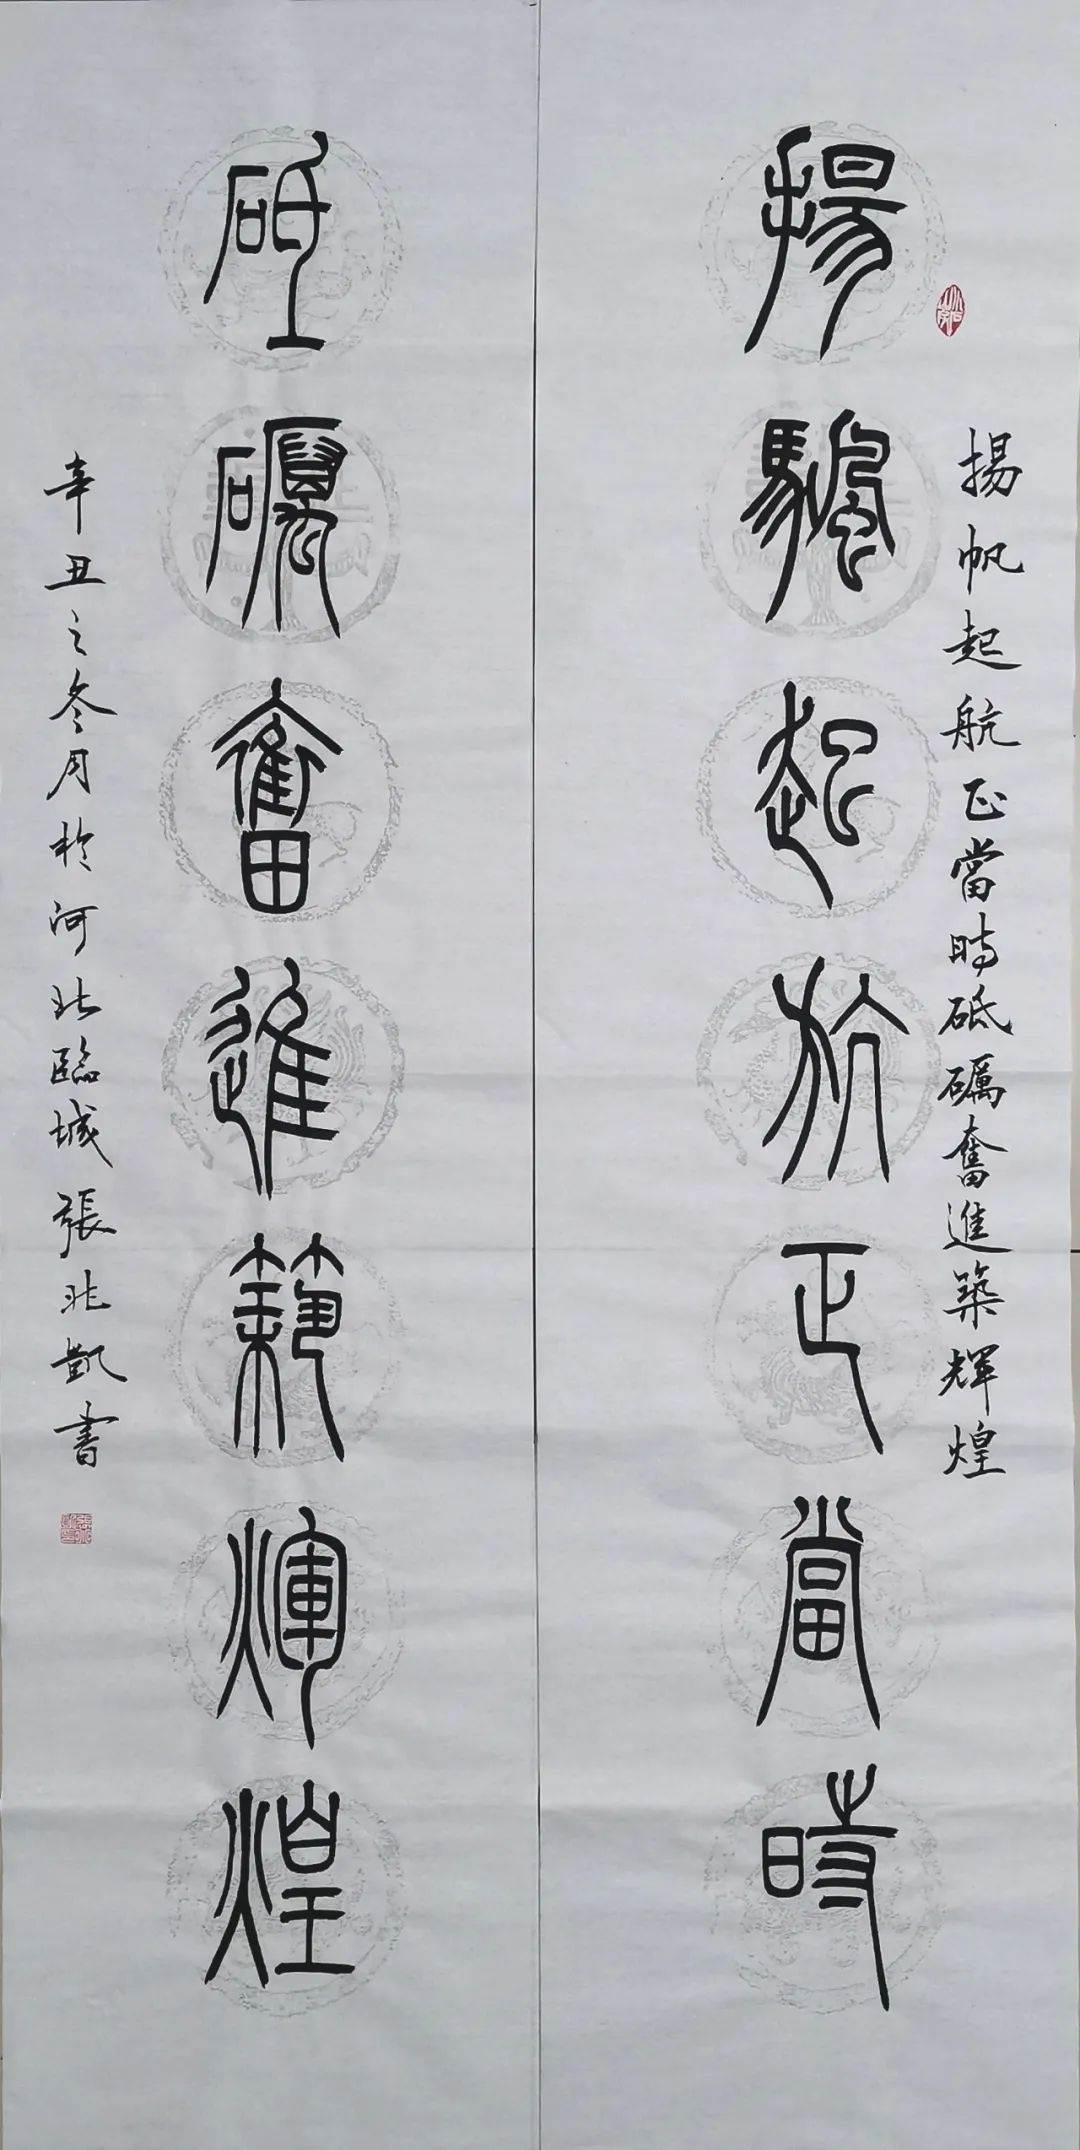 揚帆起航正當時砥礪奮進築輝煌
揚颿起航正當時
砥礪奮進築輝煌
辛丑之冬月於河北臨城張兆凱書